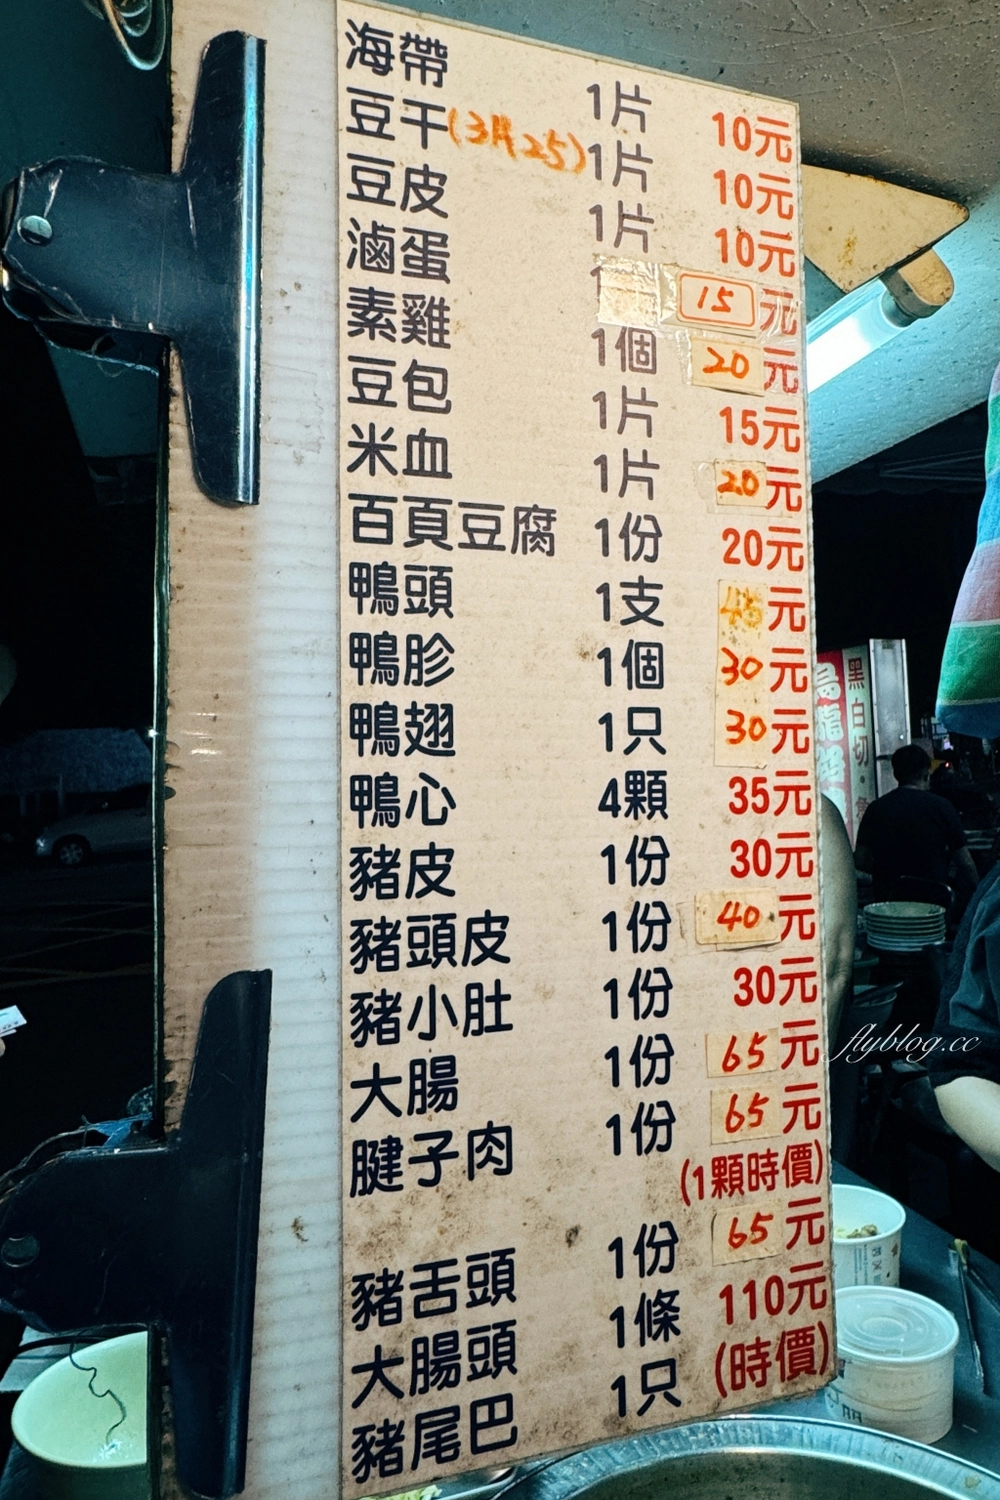 海帶 1片 10元
豆干(3片25) 1片 10元
豆皮 1片 10元
滷蛋 1 15元
素雞 1個 20元
豆包 1片 15元
米血 1片 20元
百頁豆腐 1份 20元
鴨頭 1支 45元
鴨胗 1個 30元
鴨翅 1只 30元
鴨心 4顆 35元
豬皮 1份 30元
豬頭皮 1份 40元
豬小肚 1份 30元
大腸 1份 65元
腱子肉 1份 65元
(1顆時價)
豬舌頭 1份 65元
大腸頭 1條 110元
豬尾巴 1只 (時價)
黑白切
flyblog.cc